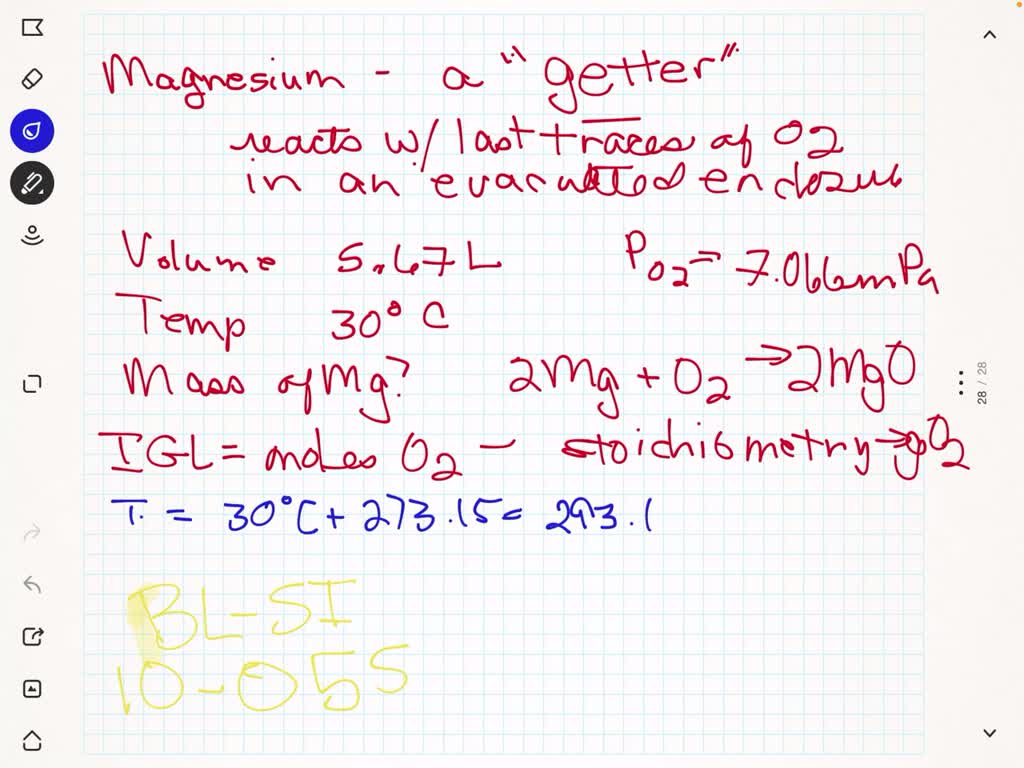 Magnesium - a "getter"
reacts w/ last traces of O2
in an evacuated enclosure
Volume 5.67L PO2 = 7.066mPa
Temp 30° C
Mass of Mg? 2Mg + O2 → 2MgO
IGL = moles O2 - stoichiometry → gO2
T. = 30°C + 273.15 = 293.1
BL-SI
10-055
28 / 28